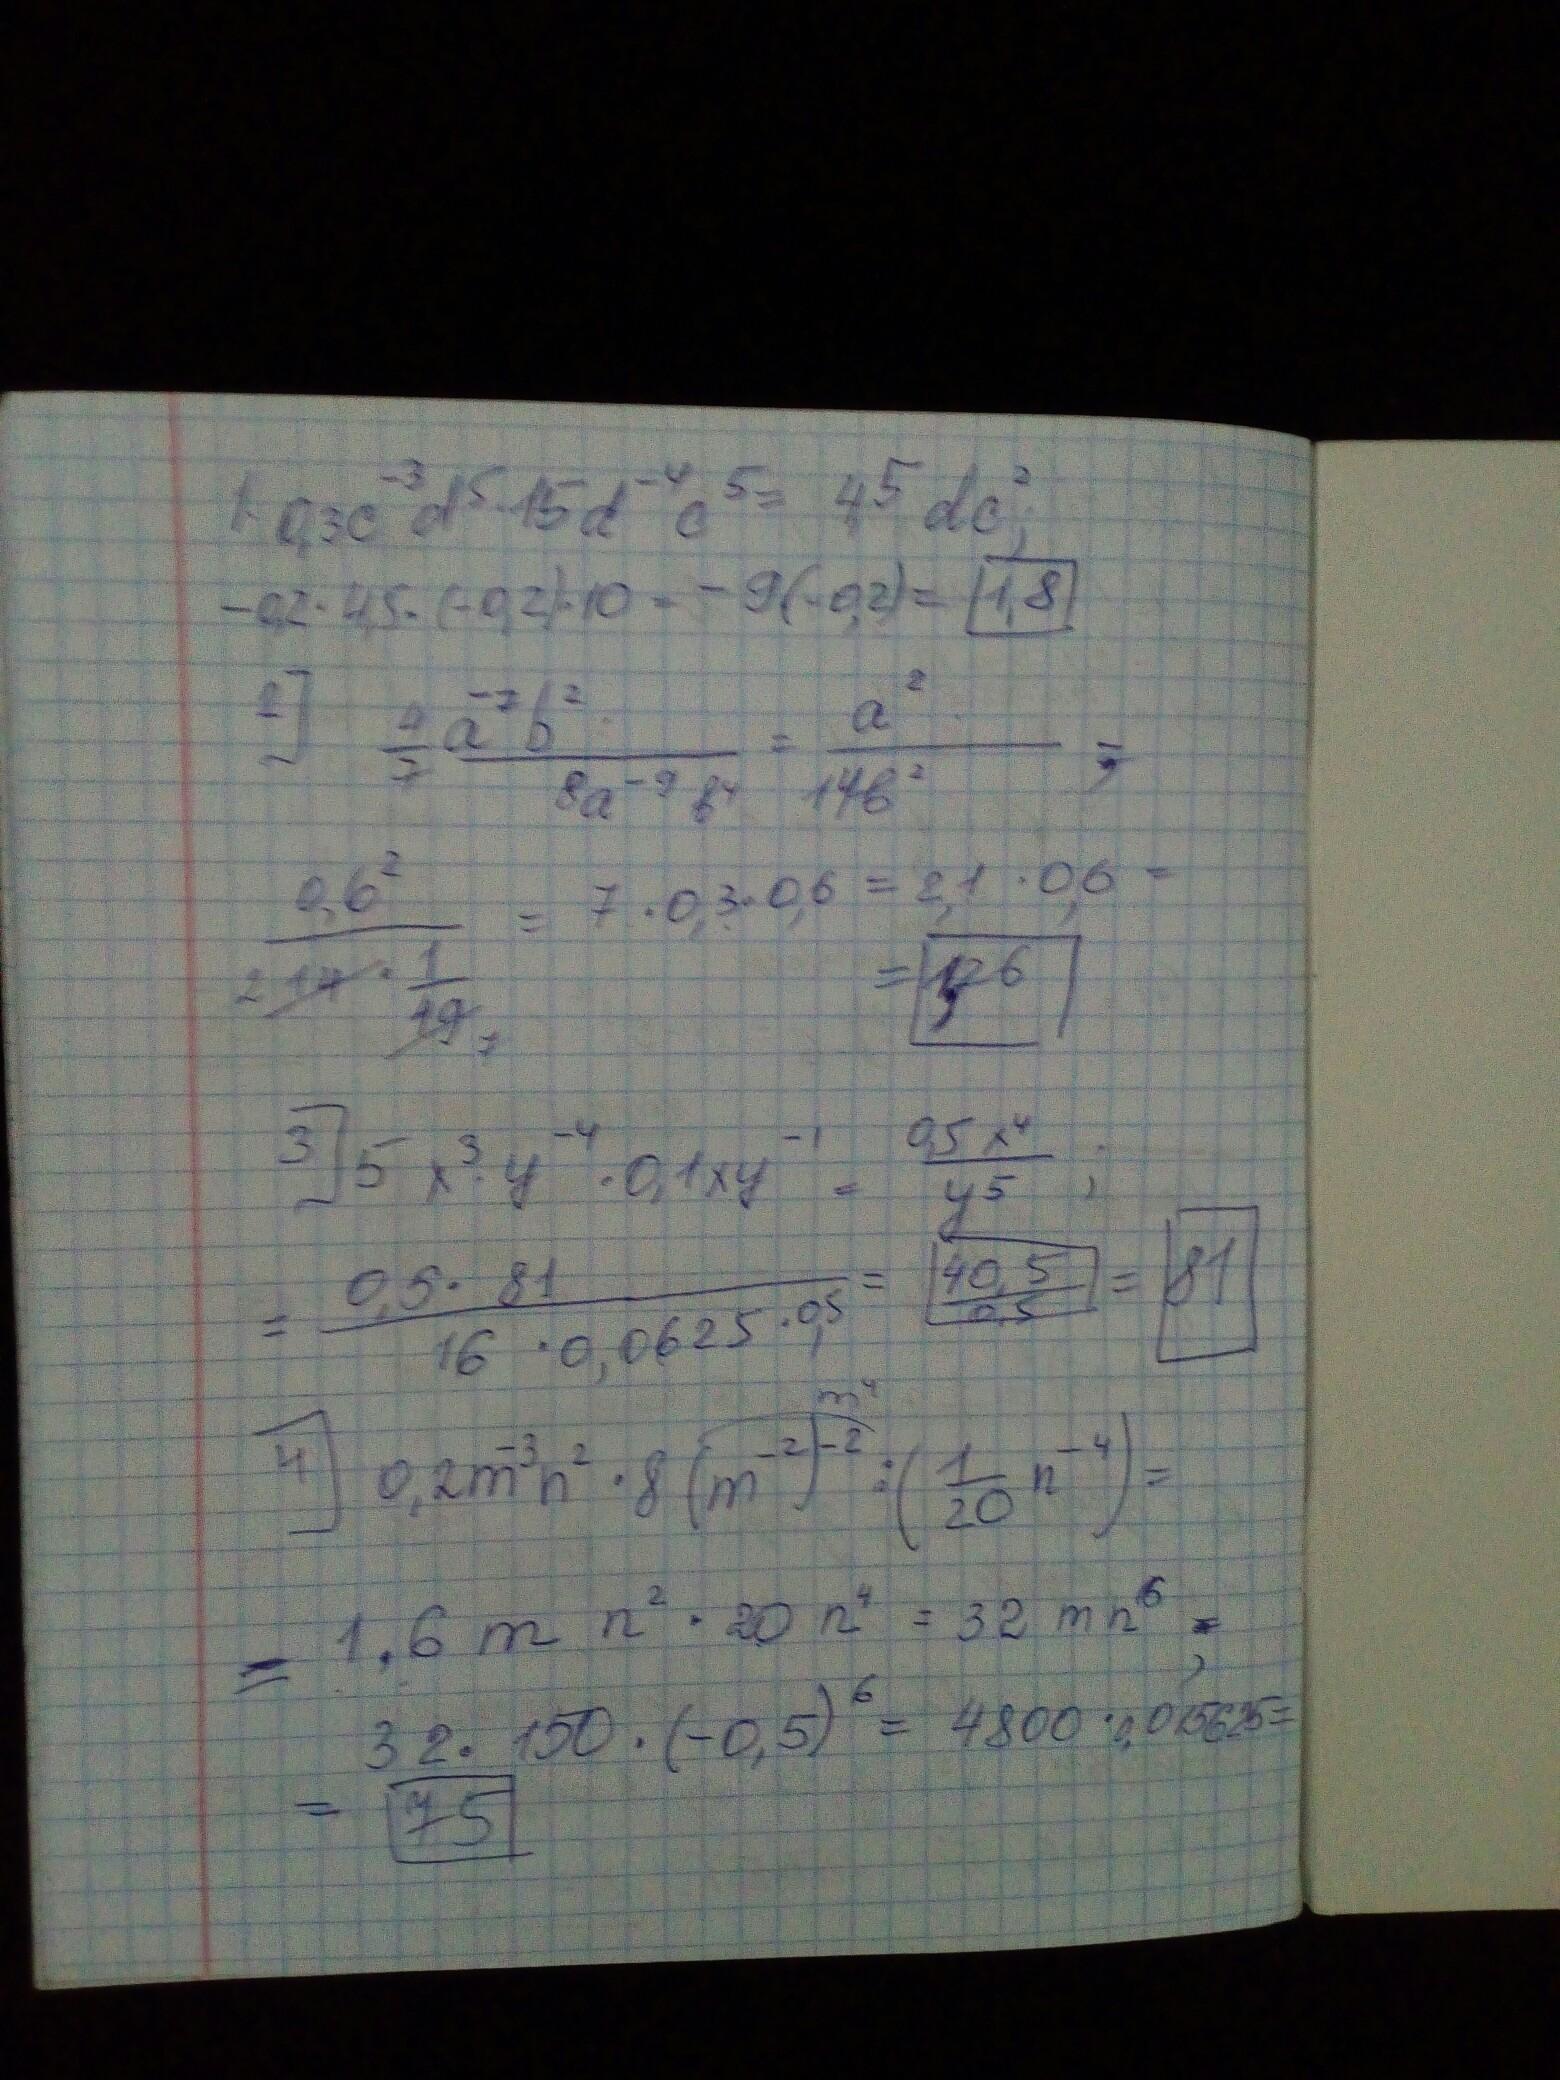 1. 0,3c⁻³d⁵·15d⁻⁴c⁵= 4,5 dc²;
-0,2·4,5·(-0,2)·10=-9(-0,2)= 1,8
2] 4/7 a⁻⁷b² / 8a⁻⁹b⁴ = a² / 14b² ;
0,6² / 2 14 · 1/49 7 = 7·0,3·0,6 = 2,1·0,6 =
= 1,26
3] 5x³·y⁻⁴·0,1xy⁻¹ = 0,5x⁴ / y⁵ ;
= 0,5·81 / 16·0,0625·0,5 = 40,5 / 0,5 = 81
m⁴
4] 0,2m⁻³n²·8(m⁻²)⁻² : (1/20 n⁻⁴)=
= 1.6 m n²·20 n⁴ = 32 mn⁶ ;
32·150·(-0,5)⁶= 4800·0,015625=
= 75